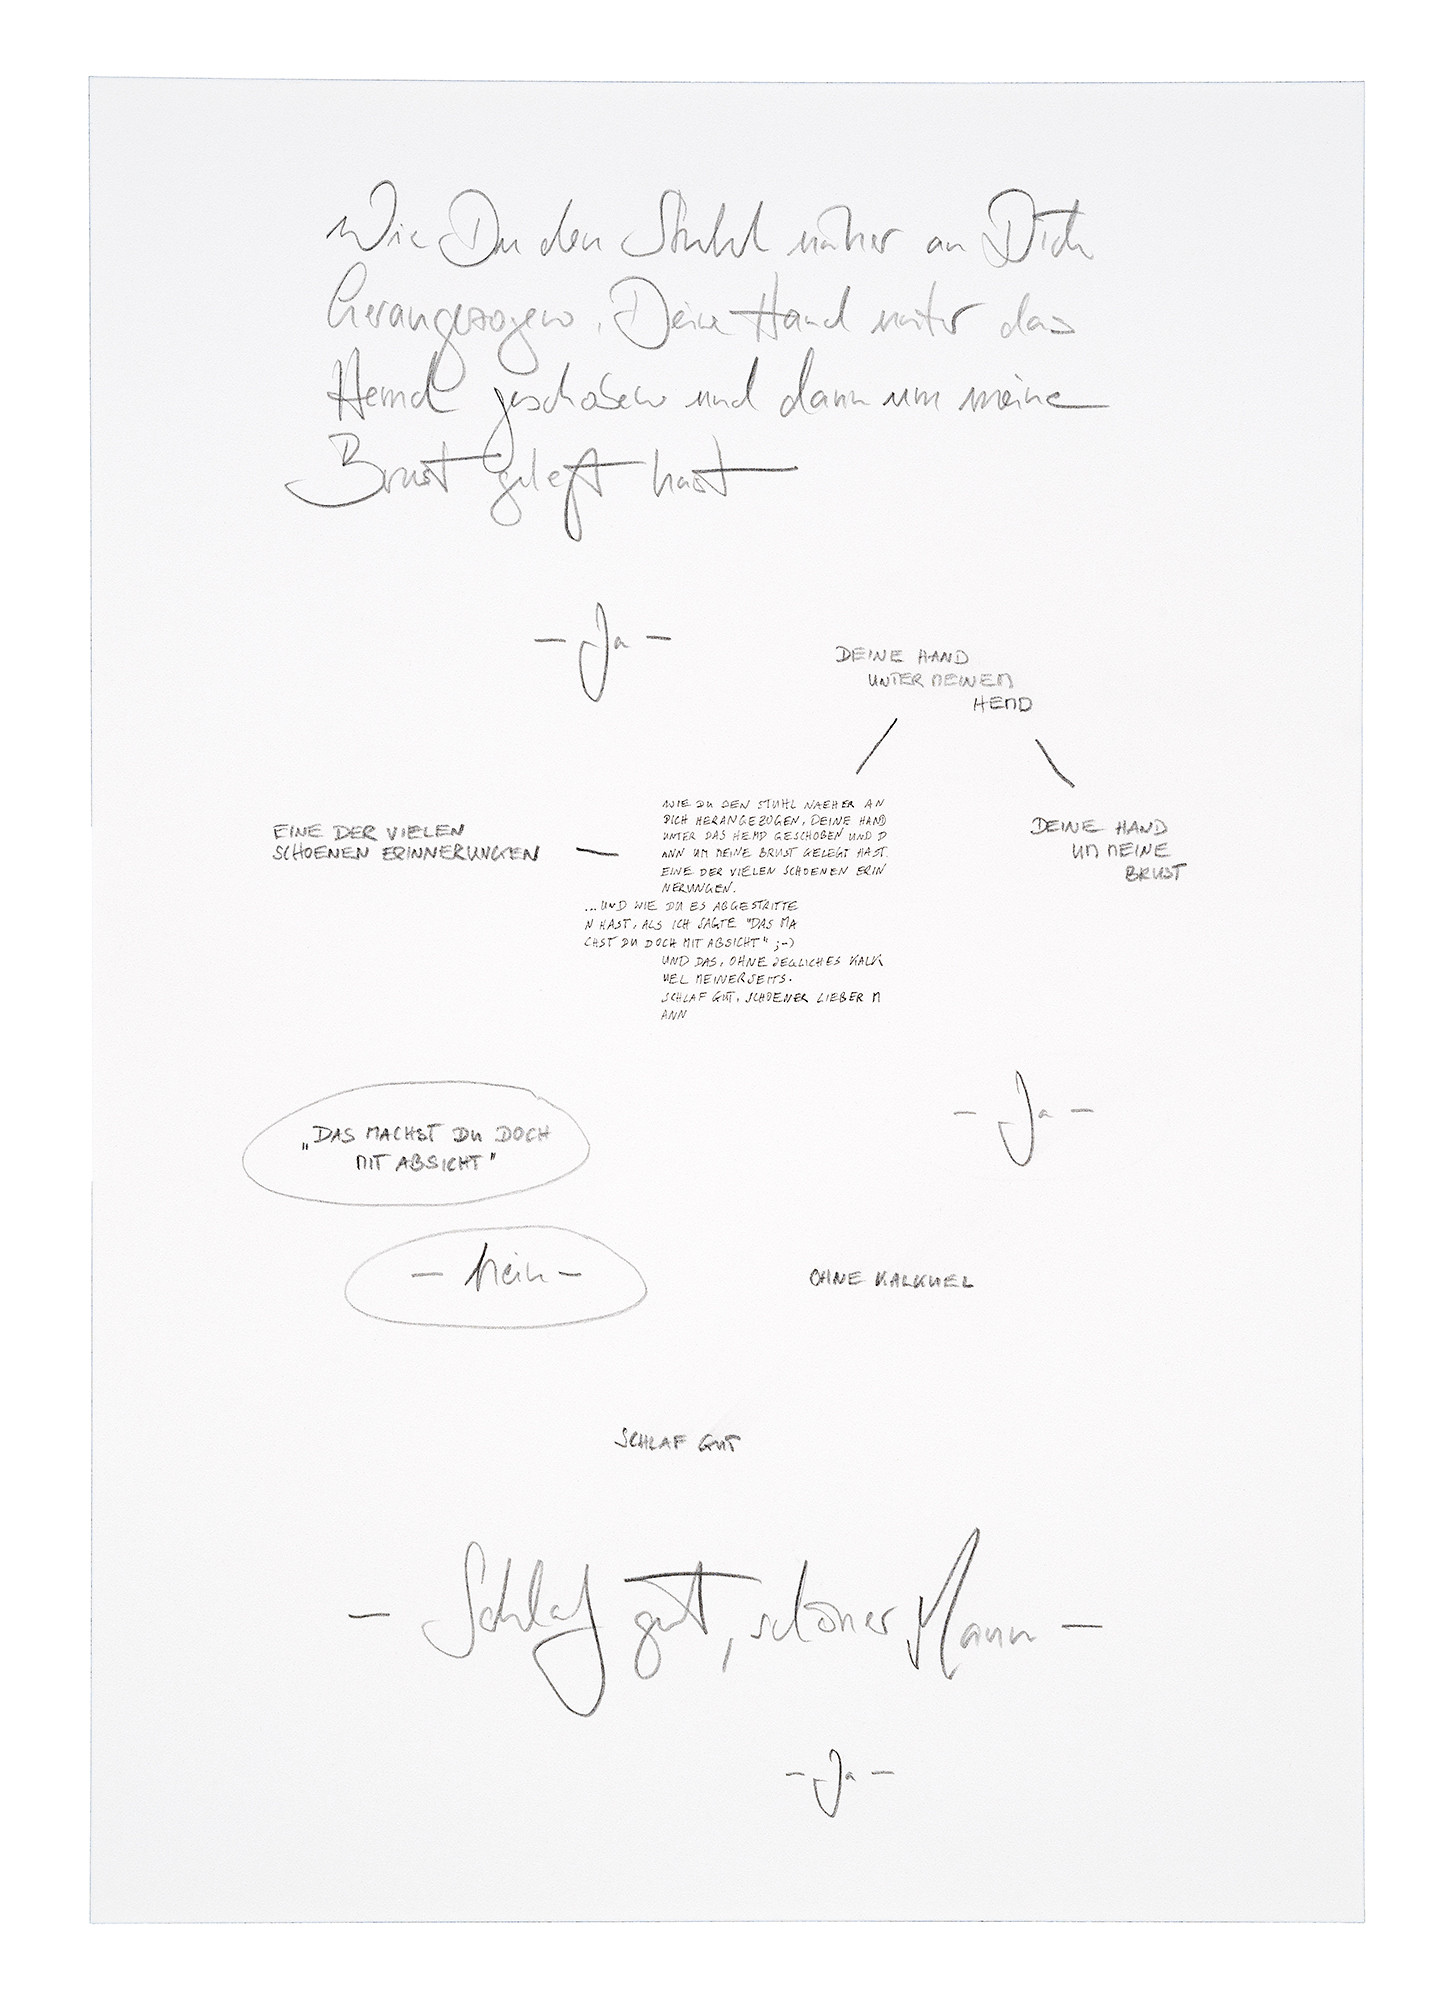 Wie Du den Stuhl näher an Dich
herangezogen, Deine Hand unter das
Hemd geschoben und dann um meine
Brust gelegt hast
– Ja –
DEINE HAND
UNTER MEINEM
HEMD
EINE DER VIELEN
SCHOENEN ERINNERUNGEN
WIE DU DEN STUHL NAEHER AN
DICH HERANGEZOGEN, DEINE HAND
UNTER DAS HEMD GESCHOBEN UND D
ANN UM MEINE BRUST GELEGT HAST.
EINE DER VIELEN SCHOENEN ERIN
NERUNGEN.
...UND WIE DU ES ABGESTRITTE
N HAST, ALS ICH SAGTE "DAS MA
CHST DU DOCH MIT ABSICHT" ;-)
UND DAS, OHNE JEGLICHES KALK
UEL MEINERSEITS.
SCHLAF GUT, SCHOENER LIEBER M
ANN
DEINE HAND
UM MEINE
BRUST
– Ja –
„DAS MACHST DU DOCH
MIT ABSICHT"
– Nein –
OHNE KALKUEL
SCHLAF GUT
– Schlaf gut, schöner Mann –
– Ja –